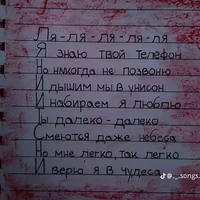 Ля-ля-ля-ля-ля
Я знаю твой телефон
Но никогда не позвоню
И дышим мы в унисон
И набираем я люблю
Ты далеко-далеко
Смеются даже небеса
Но мне легко, так легко
И верю я в чудеса
@._.songs.